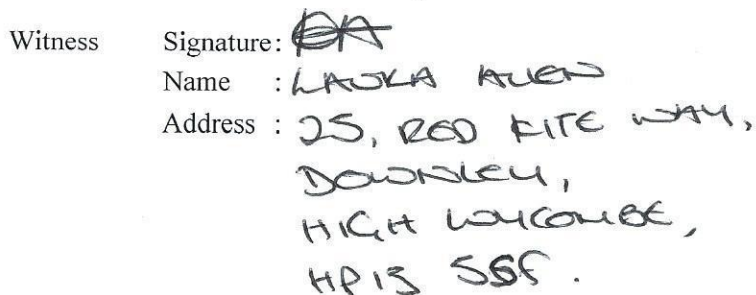 Witness Signature:
Name : LAURA ALLEN
Address : 25, RED KITE WAY,
DOWNLEY,
HIGH WYCOMBE,
HP13